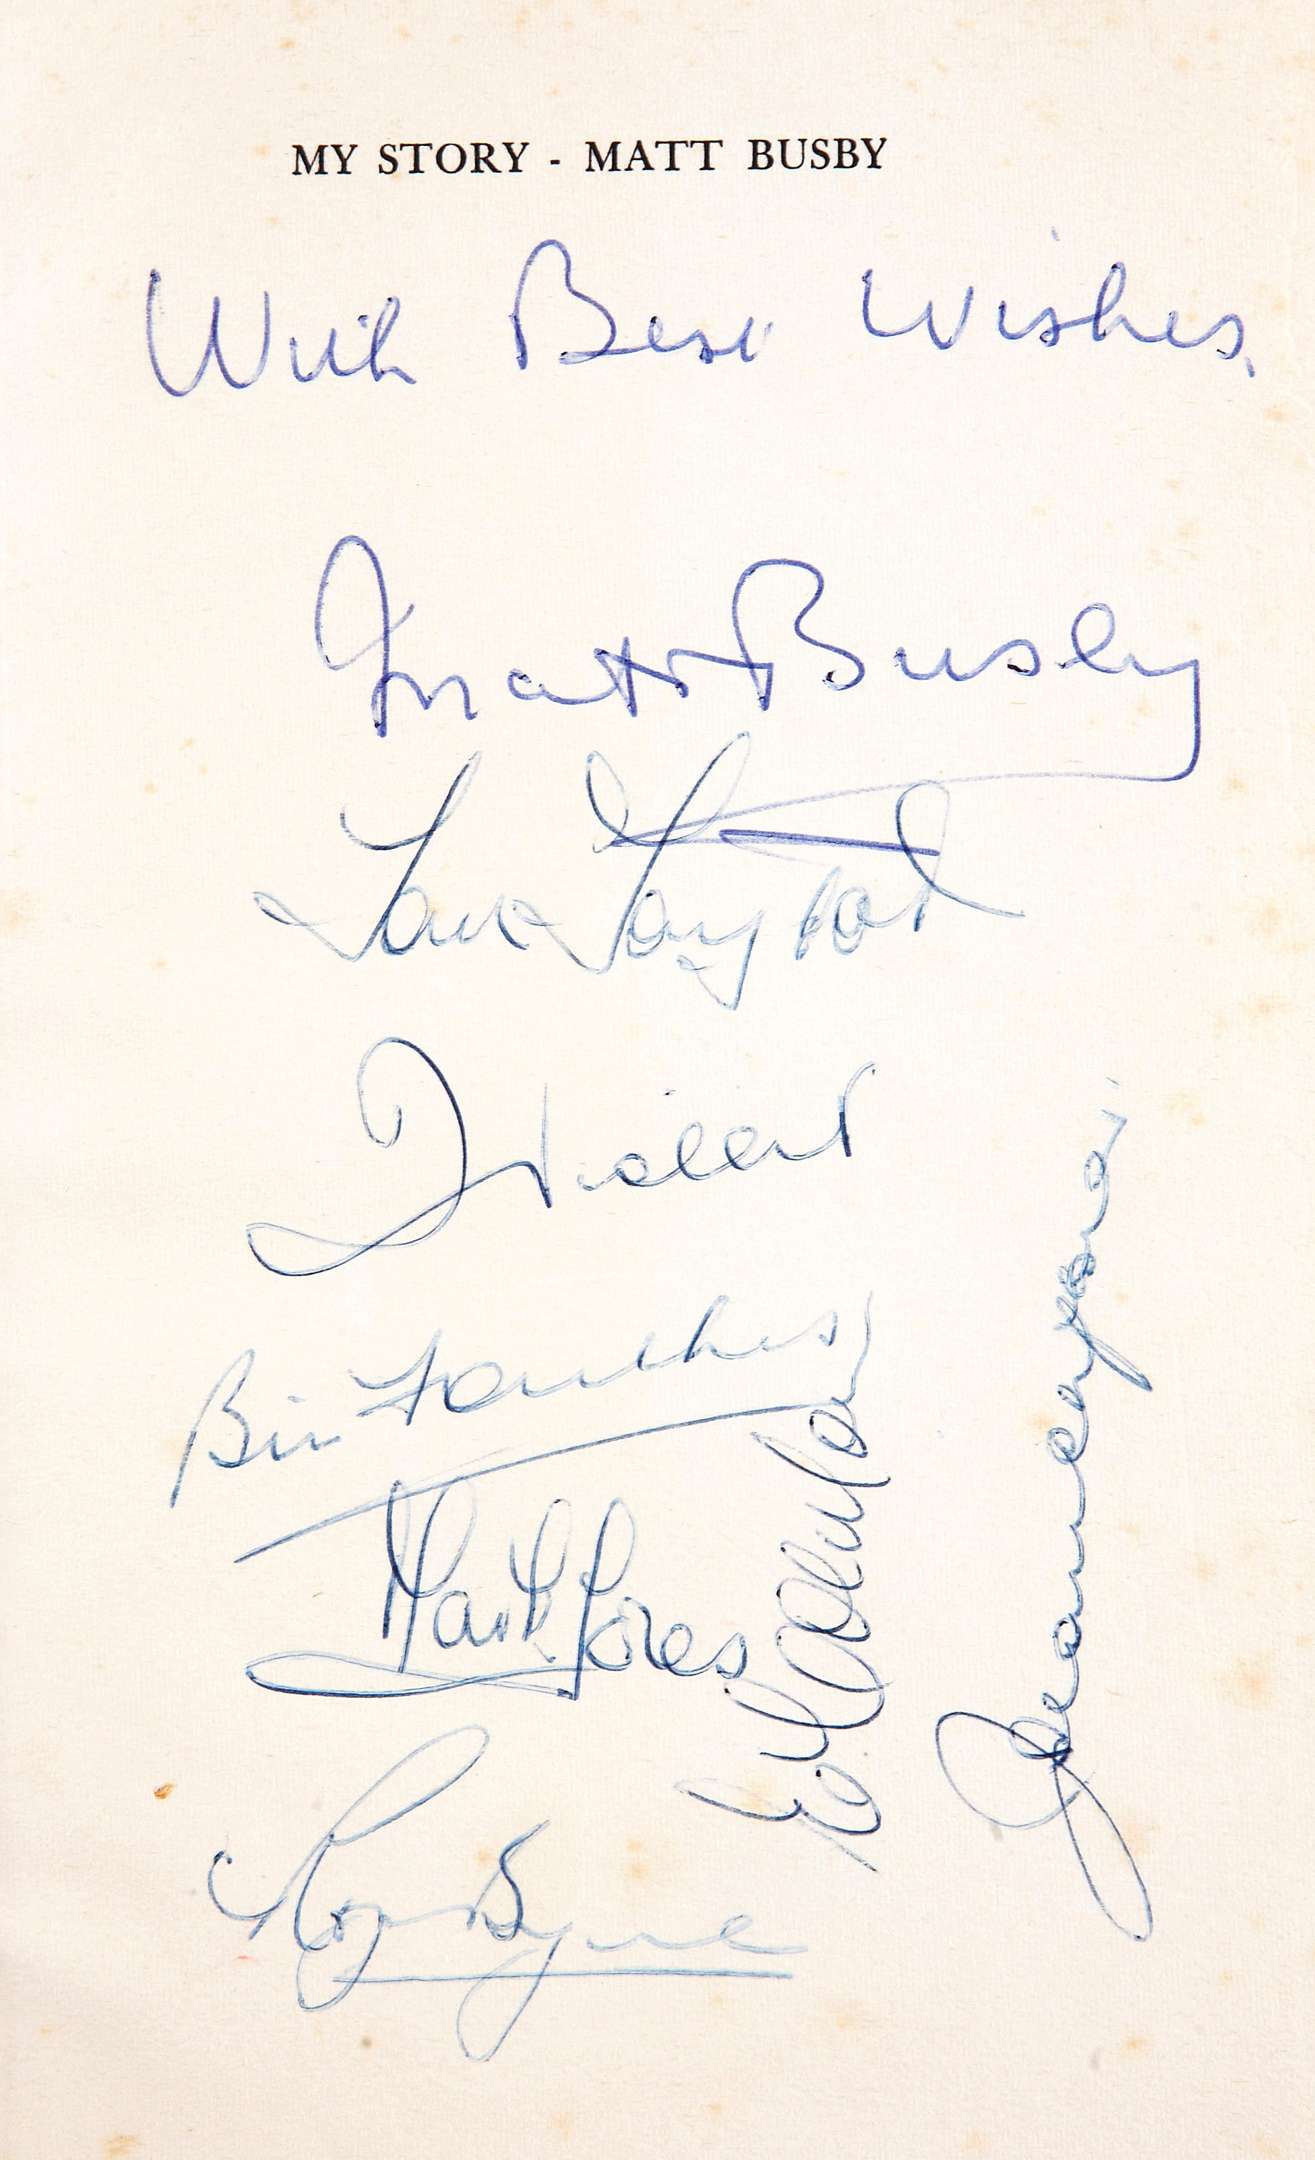 MY STORY - MATT BUSBY
With Best Wishes.
Matt Busby
Tom Taylor
D Viollet
Bill Foulkes
Mark Jones
Roger Byrne
E Colman